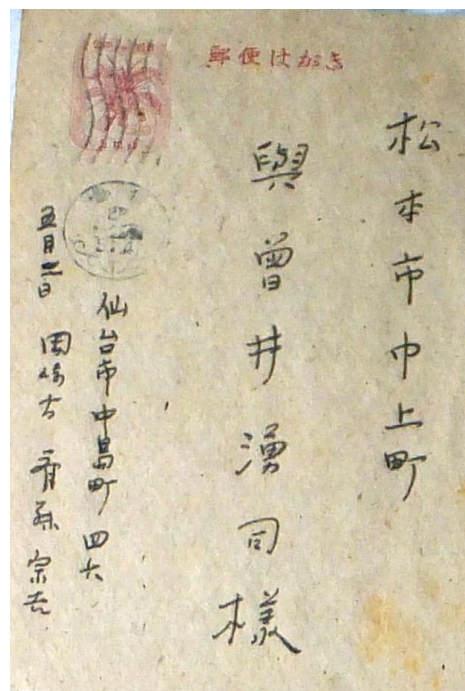 郵便はがき
松本市中上町
與曽井湧司様
仙台市中島町四六
五月二日 岡崎方 齋藤宗吉